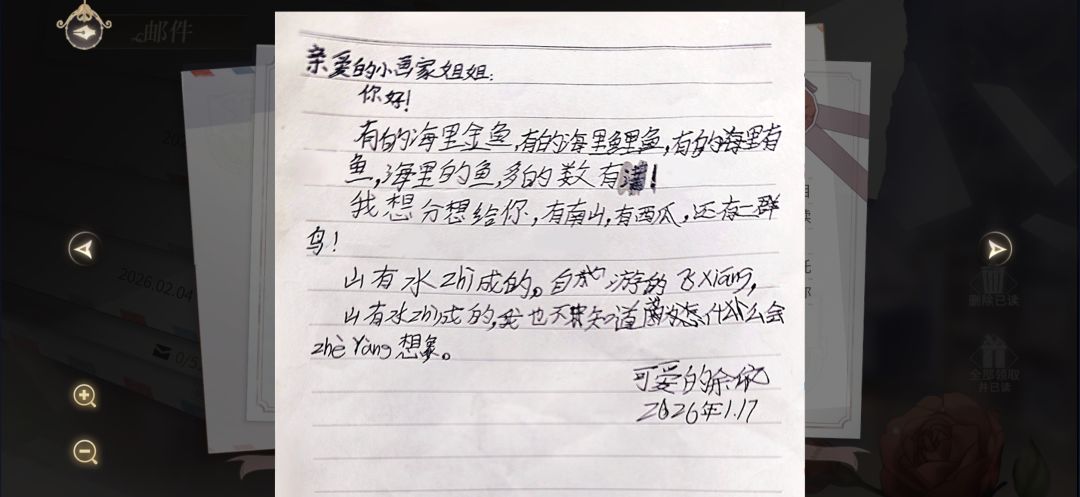 邮件
亲爱的小画家姐姐：
你好！
有的海里金鱼，有的海里鲤鱼，有的海里有
鱼，海里的鱼，多的数有满！
我想分想给你，有南山，有西瓜，还有一群
鸟！
山有水zhì成的。自 游的飞xiáng，
山有水zhì成的，我也不知道 什么会
zhè yàng想象。
可爱的余
2026年1.17
2026.02.04
0/5
删除已读
全部领取
并已读